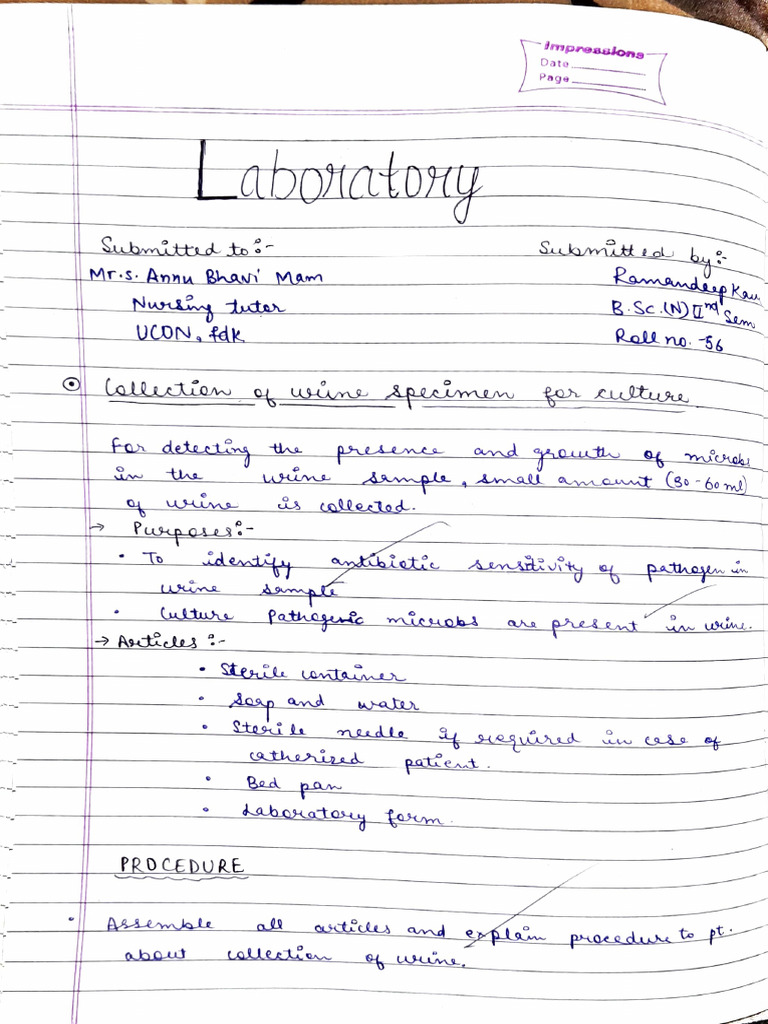 Impressions
Date
Page
Laboratory
Submitted to:-
Submitted by:-
Mr.s. Annu Bhavi Mam
Ramandeep Kau
Nursing tutor
B.Sc.(N) IInd Sem
UCON, fdk
Roll no. -56
Collection of urine specimen for culture
For detecting the presence and growth of microbs
in the urine sample, small amount (30-60 ml)
of urine is collected.
→ Purposes:-
• To identify antibiotic sensitivity of pathogen in
urine sample
• Culture Pathogenic microbs are present in urine.
→ Articles:-
• Sterile container
• Soap and water
• Sterile needle if required in case of
catherized patient.
• Bed pan
• Laboratory form.
PROCEDURE
• Assemble all articles and explain procedure to pt.
about collection of urine.